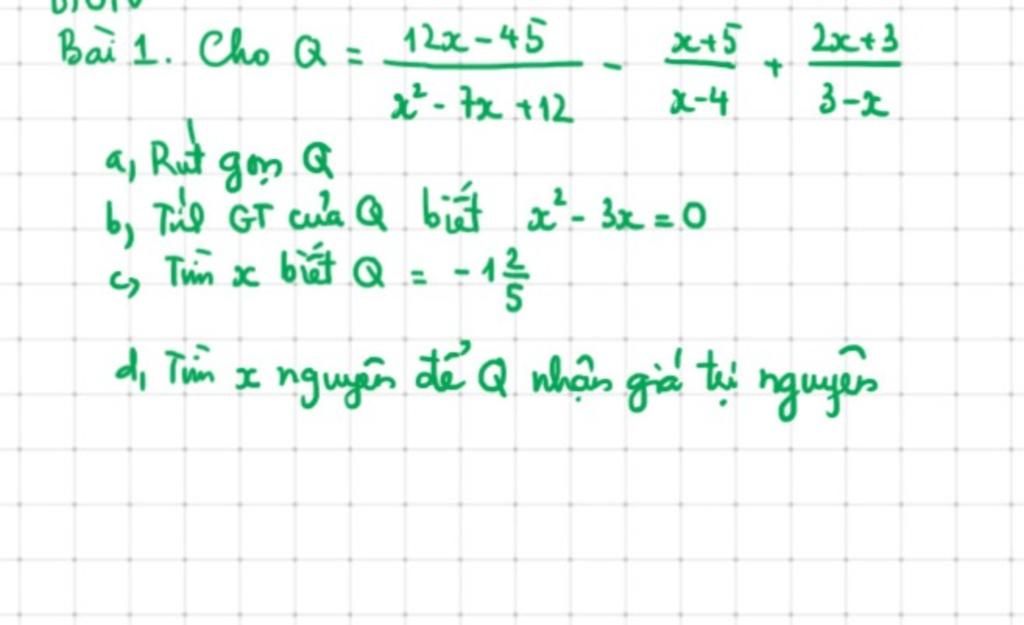 Bài 1. Cho Q = \frac{12x-45}{x^2-7x+12} - \frac{x+5}{x-4} + \frac{2x+3}{3-x}
a, Rút gọn Q
b, Tính GT của Q biết x² - 3x = 0
c, Tìm x biết Q = -1\frac{2}{5}
d, Tìm x nguyên để Q nhận giá trị nguyên